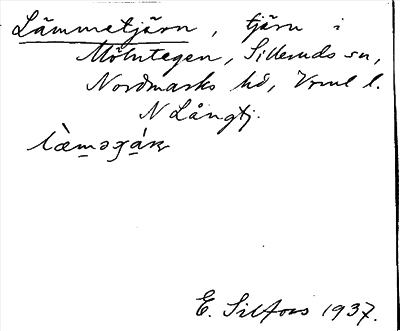 Lämmetjärn, tjärn i
Mölntegen, Silleruds sn,
Nordmarks hd, Vrml l.
N Långtj.
E. Silfors 1937.